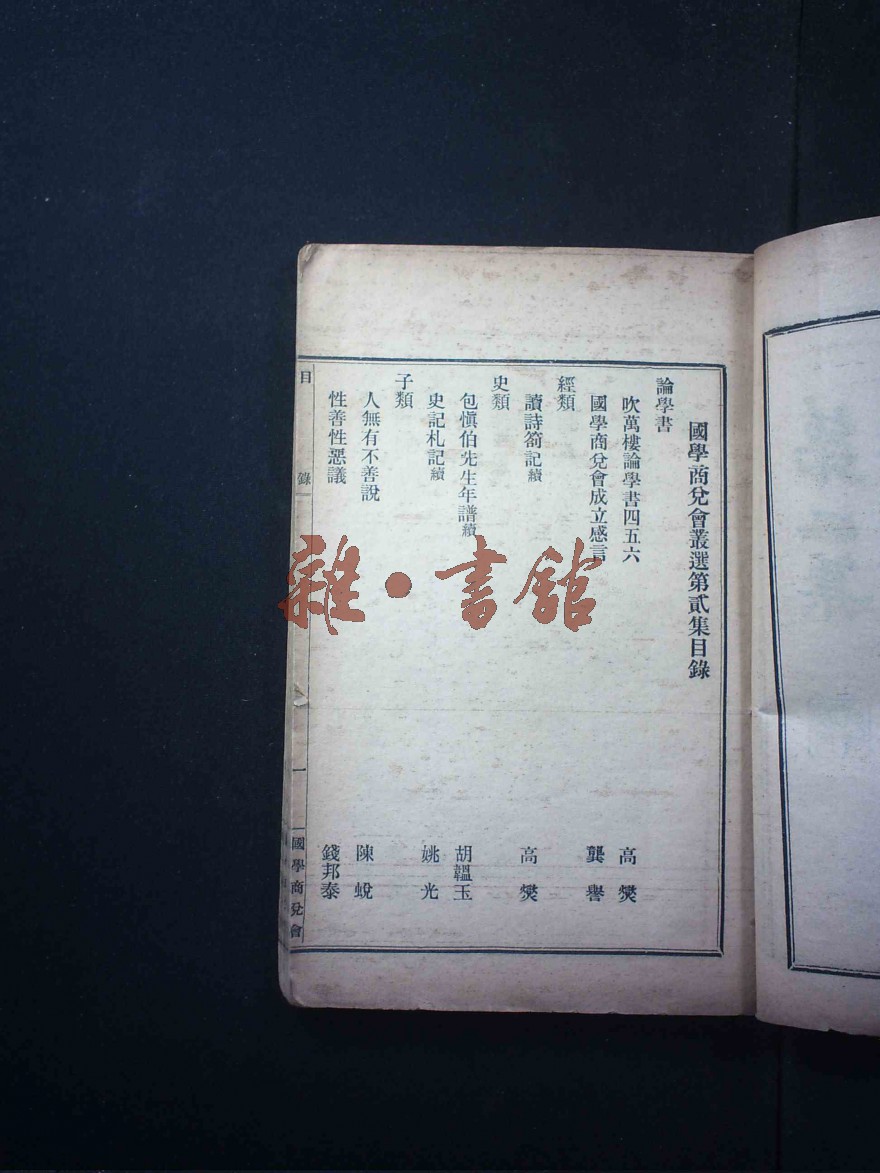 國學商兌會叢選第貳集目錄
論學書
吹萬樓論學書四五六 高燮
國學商兌會成立感言 龔譽
經類
讀詩劄記續 高燮
史類
包愼伯先生年譜續 胡韞玉
史記札記續 姚光
子類
人無有不善說 陳蛻
性善性惡議 錢邦泰
目錄
一
國學商兌會
雜·書館